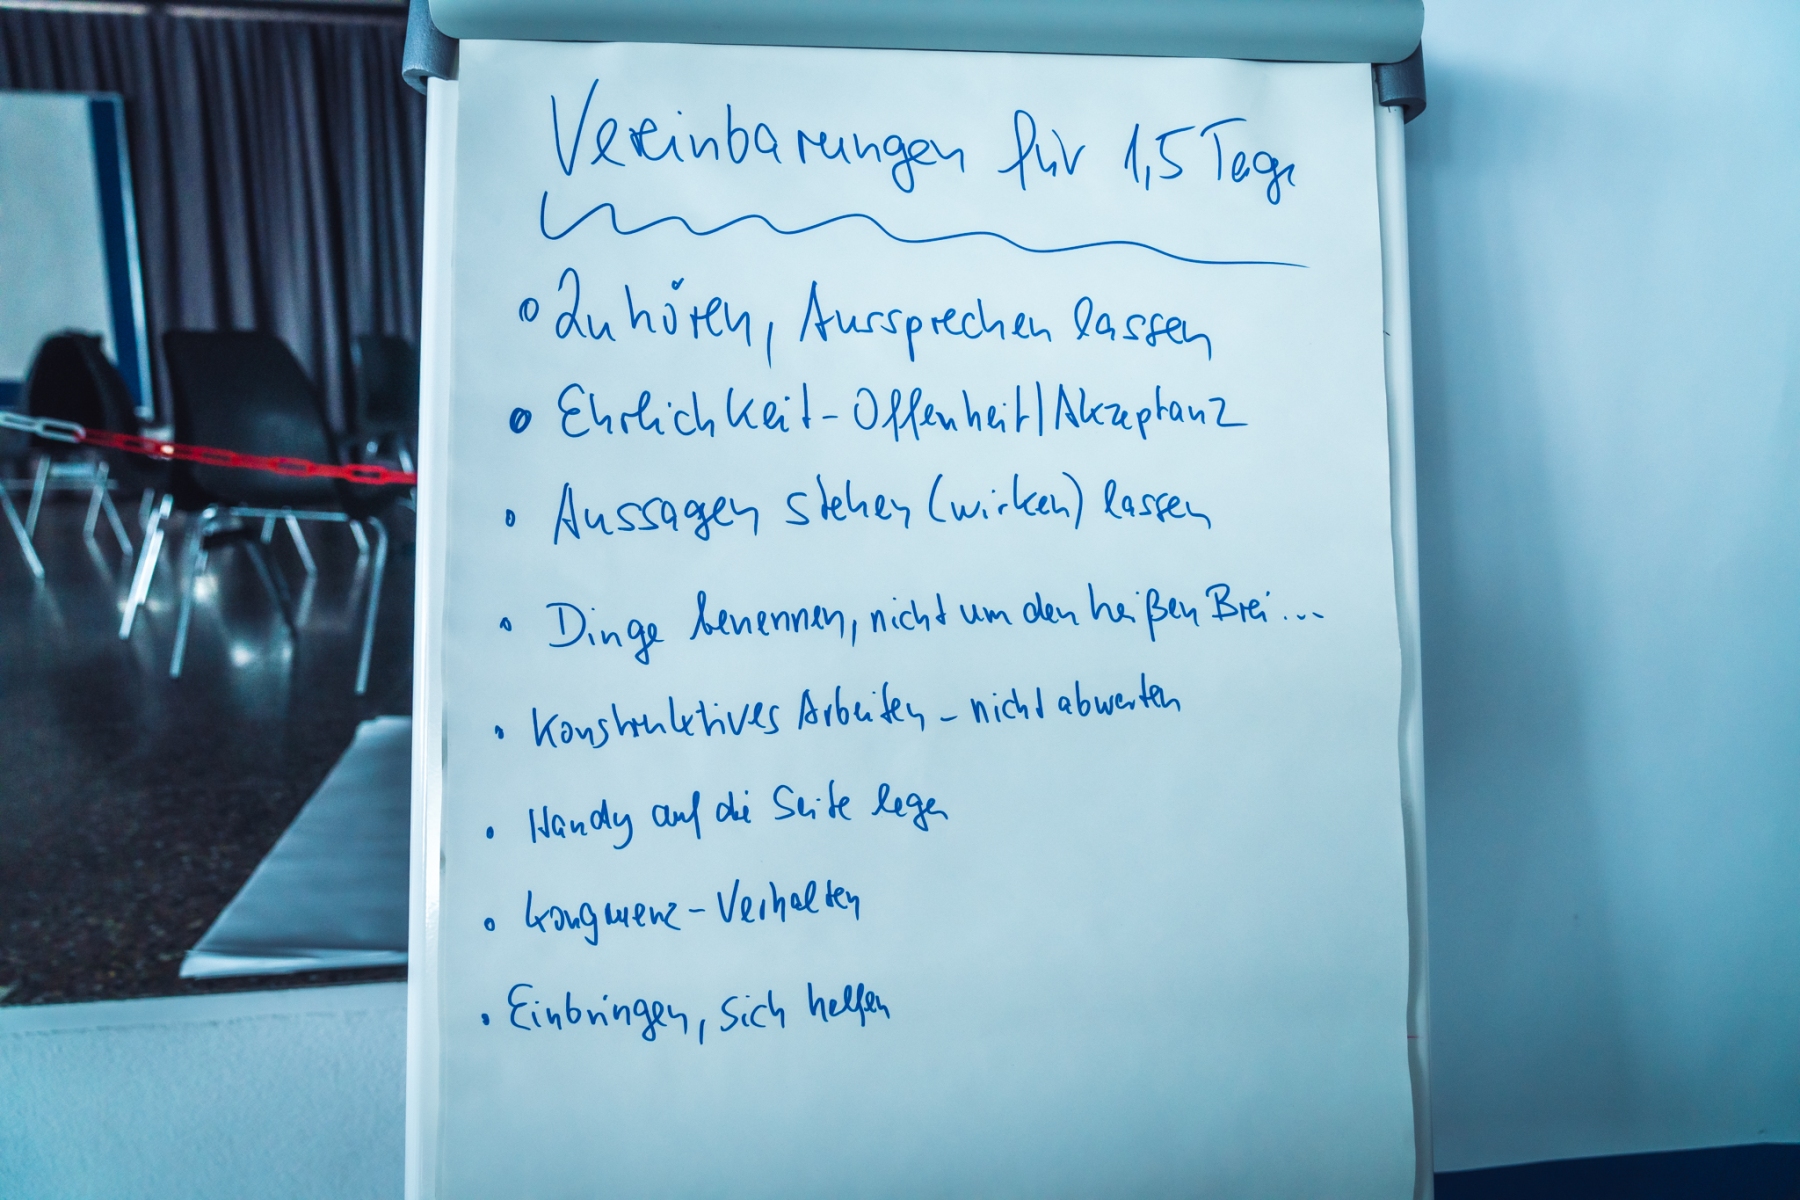 Vereinbarungen für 1,5 Tage
• Zuhören, Aussprechen lassen
• Ehrlichkeit - Offenheit/Akzeptanz
• Aussagen stehen (wirken) lassen
• Dinge benennen, nicht um den heißen Brei...
• Konstruktives Arbeiten - nicht abwerten
• Handy auf die Seite legen
• Kongruenz - Verhalten
• Einbringen, sich helfen